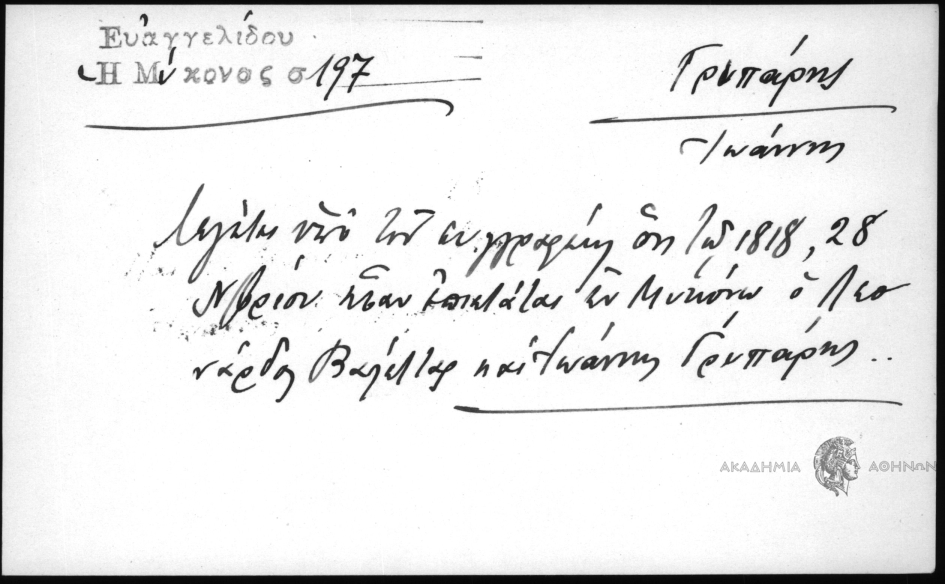 Εὐαγγελίδου
Ἡ Μύκονος σ 197
Γρυπάρης
Ἰωάννης
Λέγεται ὑπὸ τοῦ συγγραφέως ὅτι τῷ 1818, 28
Νβρίου ἦσαν ἐπιστάται ἐν Μυκόνῳ ὁ Λεο
νάρδος Βαλέττας καὶ Ἰωάννης Γρυπάρης ..
ΑΚΑΔΗΜΙΑ ΑΘΗΝΩΝ